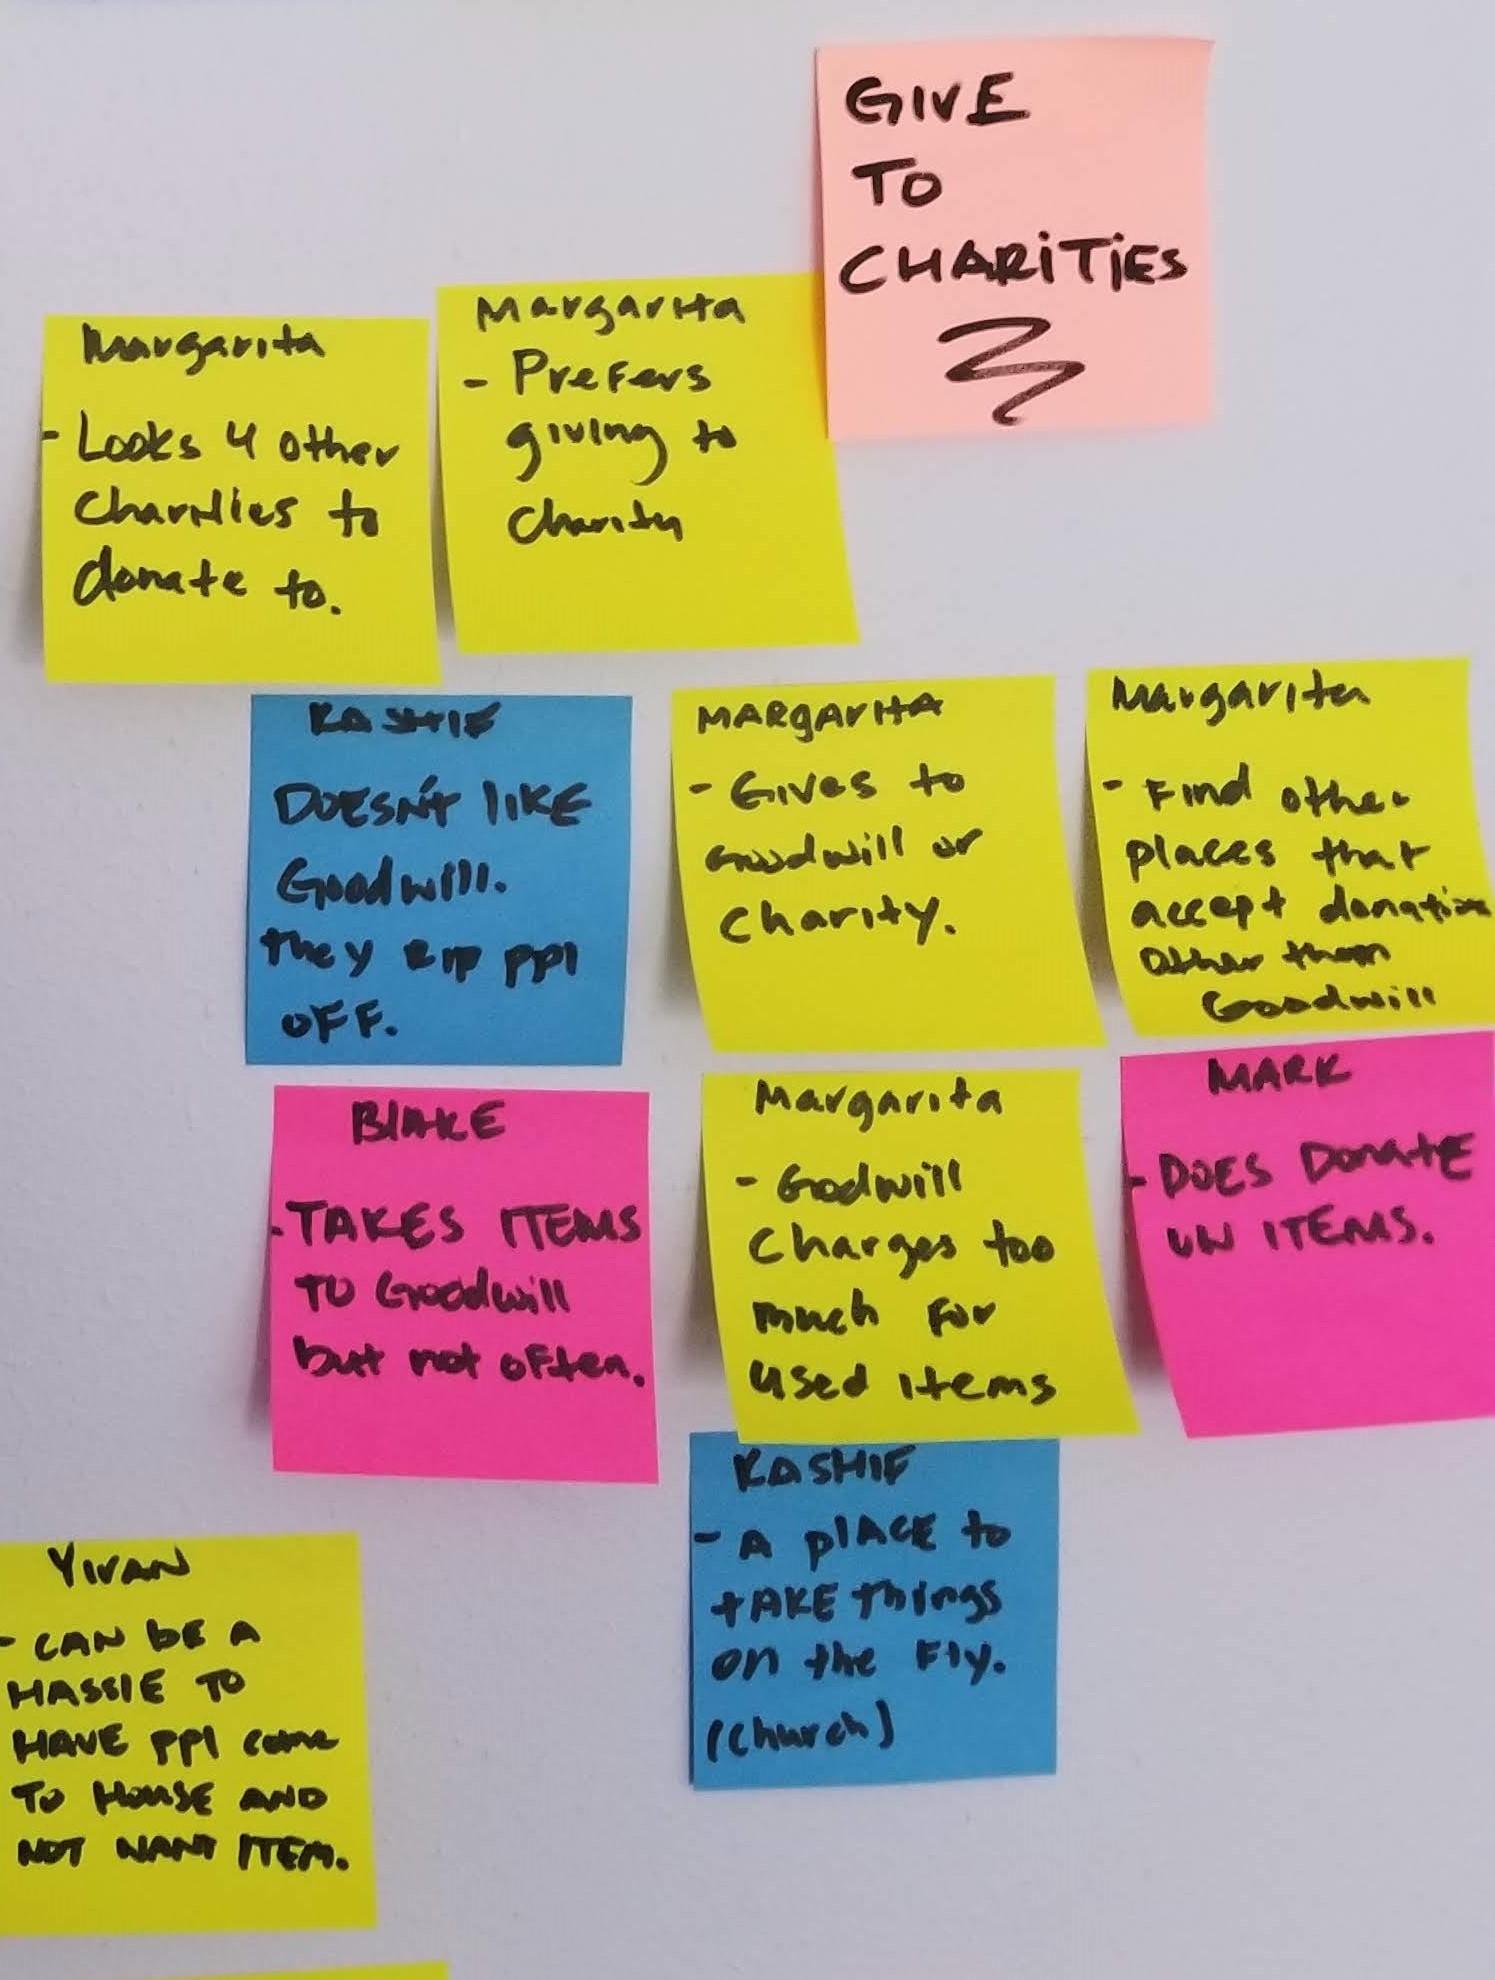 GIVE
TO
CHARITIES
Margarita
- Looks 4 other
Charities to
donate to.
Margarita
- Prefers
giving to
Charity
KASHIF
DOESN'T LIKE
Goodwill.
they RIP ppl
OFF.
MARgARITA
- Gives to
Goodwill or
charity.
Margarita
- Find other
places that
accept donation
other than
Goodwill
BLAKE
- TAKES ITEMS
TO Goodwill
but not often.
Margarita
- Goodwill
Charges too
much for
used items
MARK
- DOES DonatE
UW ITEMS.
KASHIF
- A plACE to
tAKE things
on the Fly.
(Church)
YIVAN
- CAN bE A
HASSlE TO
HAVE ppl come
TO HOUSE AND
NOT WANT ITEM.